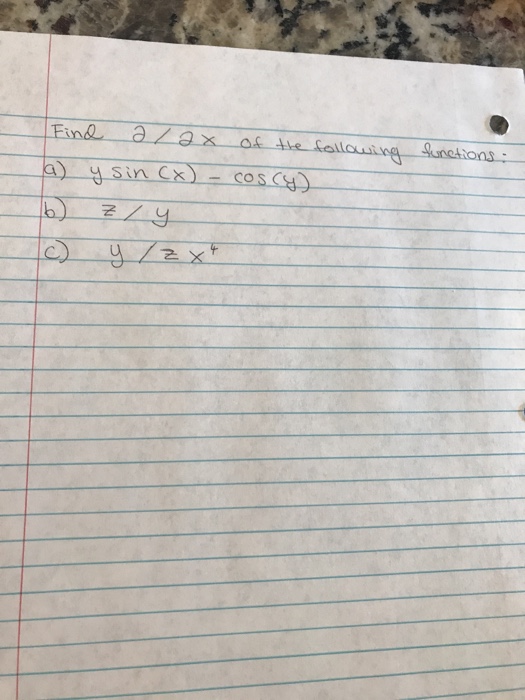 Find ∂/∂x of the following functions:
a) y sin (x) - cos(y)
b) z / y
c) y / z x⁴